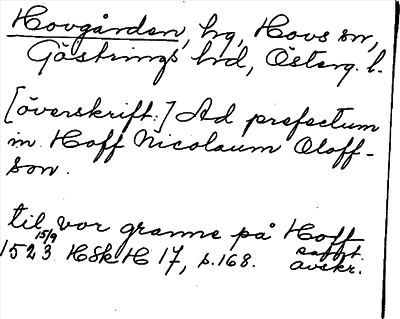 Hovgården, hg, Hovs sn,
Göstrings hrd, Österg. l.
[överskrift:] Ad prefectum
in Hoff Nicolaum Oloff-
son.
til vor granne på Hoff
1523 15/9 HSk H 17, s. 168. samt. avskr.